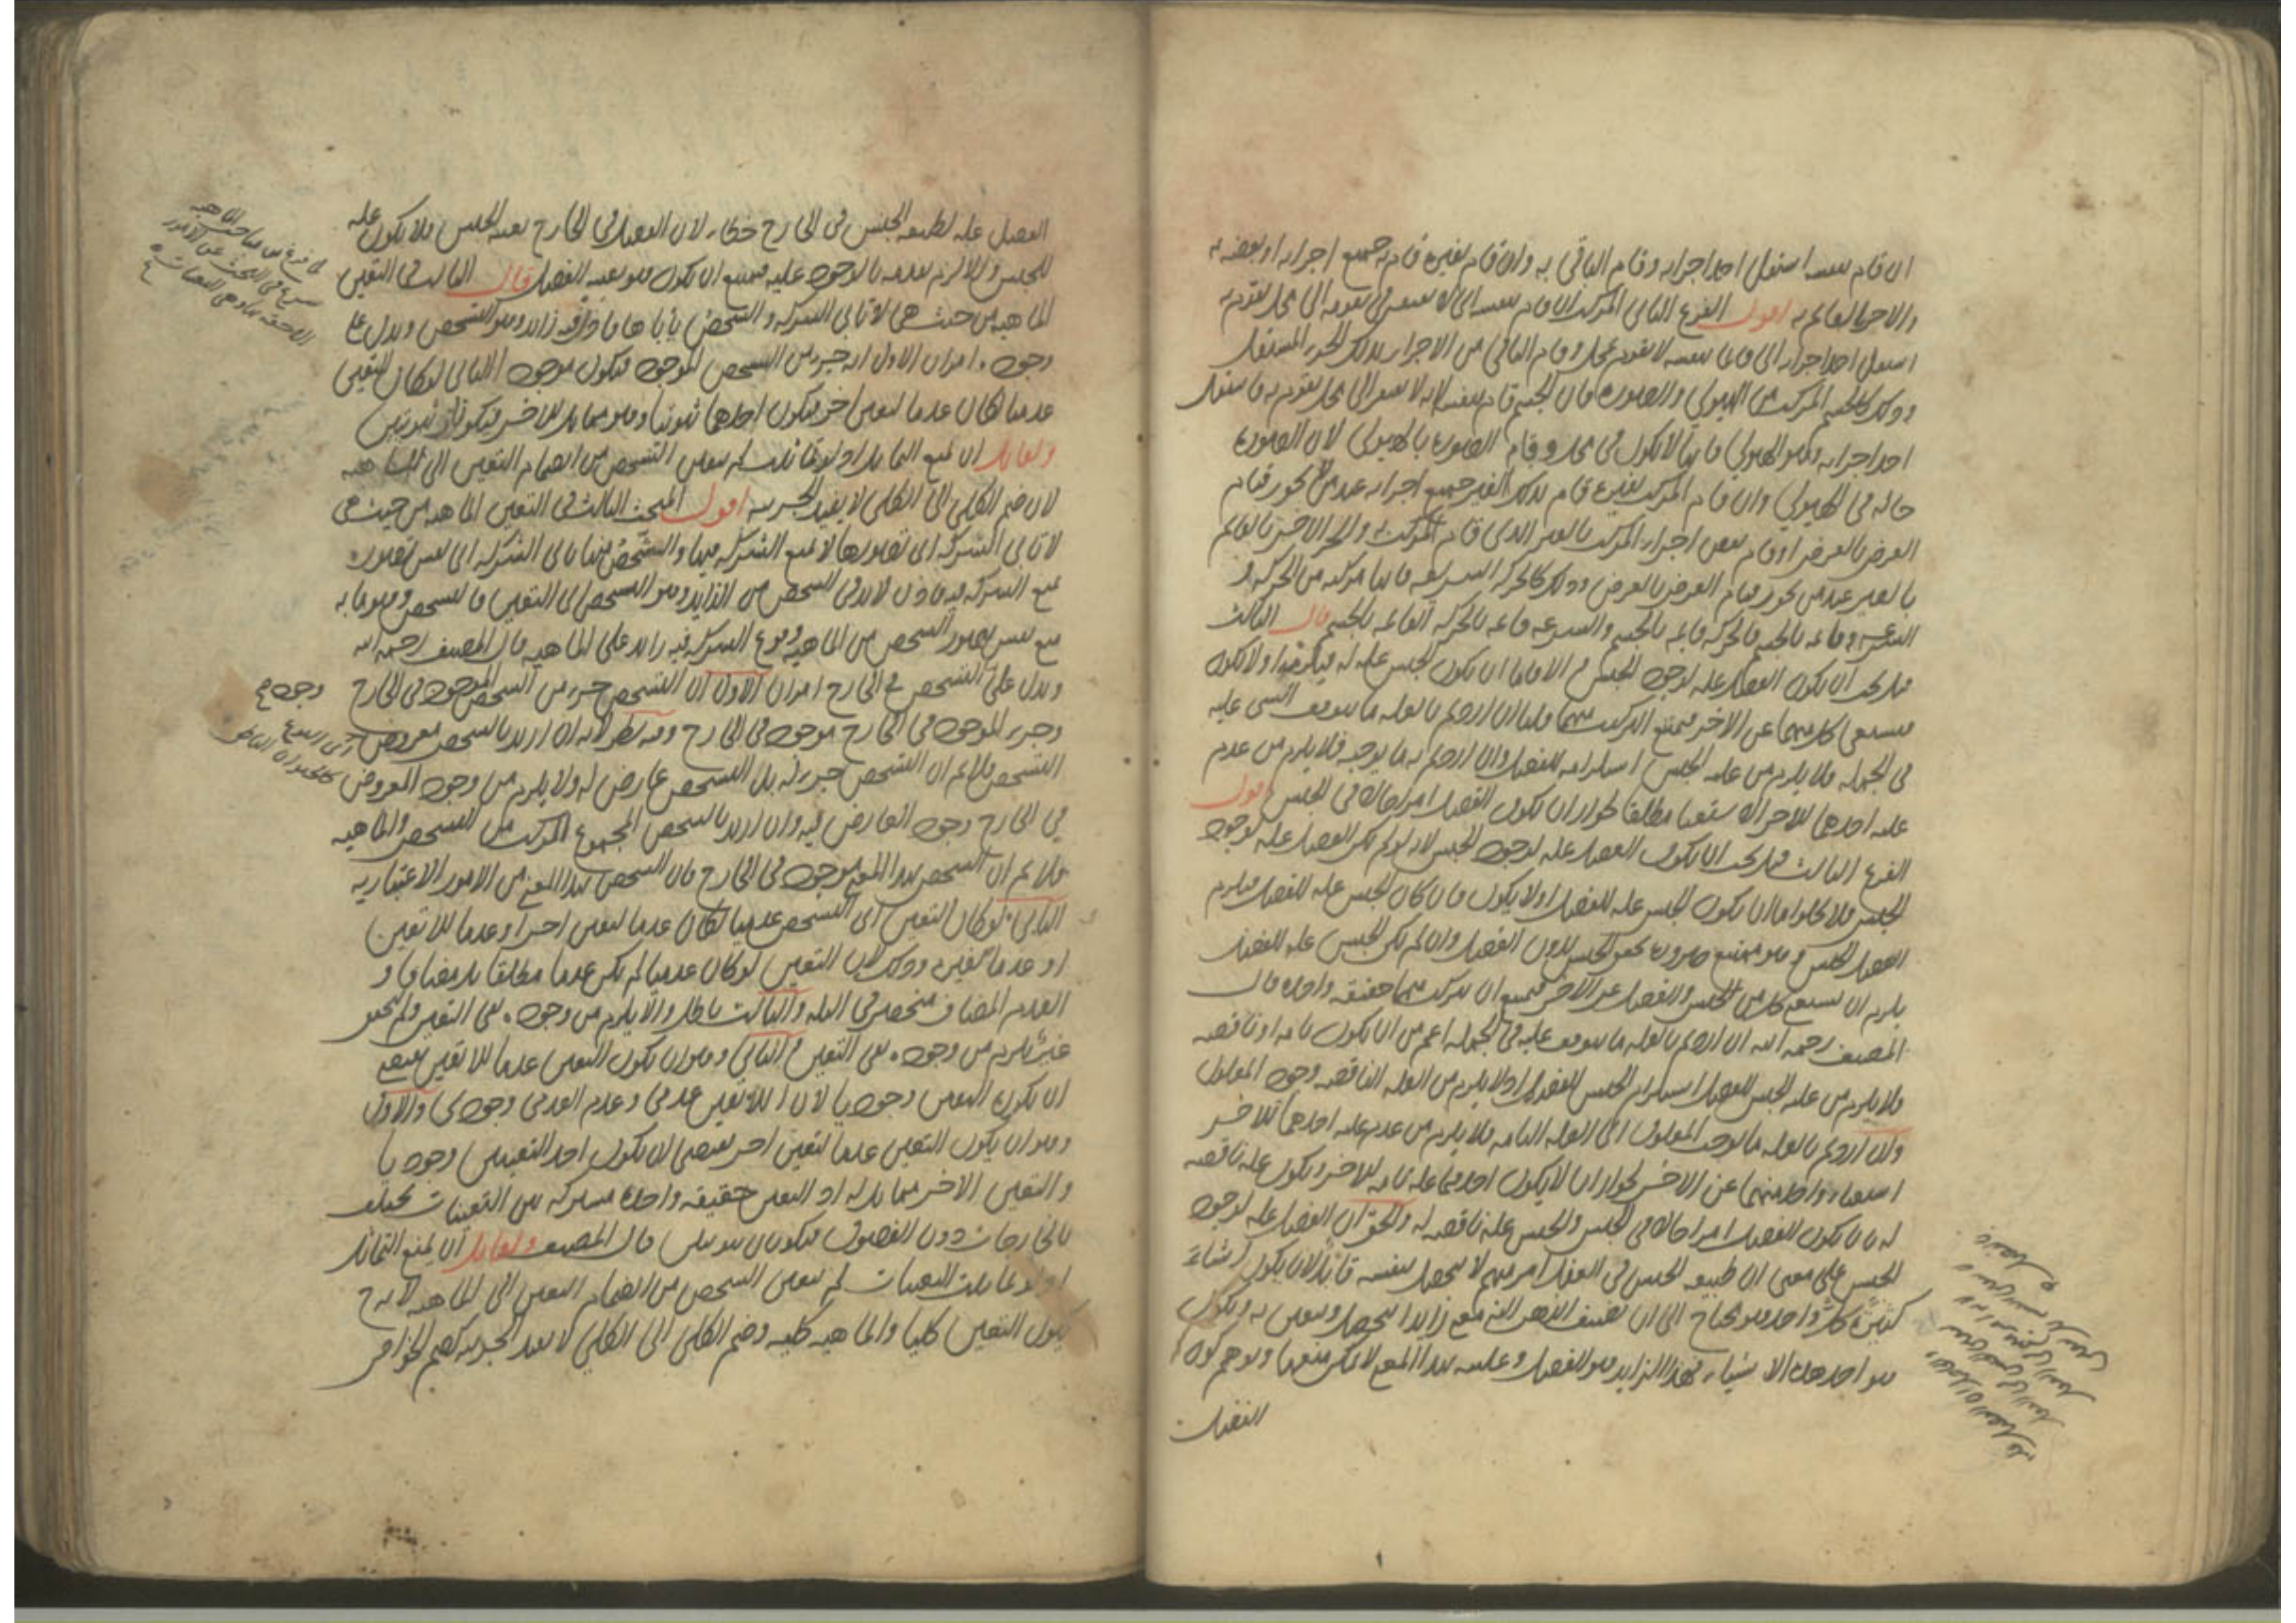 ان قام بنفسه استقل احد اجزايه وقام الباقى به وان قام بغيره قام به جميع اجزايه او بعضه به
والاخر القايم به اقول الفرع الثانى المركب ان قام بنفسه اى لا يفتقر فى تقومه الى محل يتقوم به
استقل احد اجزايه اى قايما بنفسه لا يتقوم بمحل وقام الباقى من الاجزاء بذلك الجزء المستقل
وذلك كالجسم المركب من الهيولى والصورة فان الجسم قام بنفسه لانه لا يفتقر الى محل يتقوم به فاستقل
احد اجزايه وهو الهيولى فانها لا تكون فى محل وقام الصورة بالهيولى لان الصورة
حالة فى الهيولى وان قام المركب بغيره قام بذلك الغير جميع اجزايه عند من لا يجوز قيام
العرض بالعرض او قام بعض اجزاء المركب بالغير الذى قام المركب به والجزء الاخر بالقايم
بالغير عند من يجوز قيام العرض بالعرض وذلك كالحركة السريعة فانها مركبة من الحركة و
السرعة وقايمة بالجسم فالحركة قايمة بالجسم والسرعة قايمة بالحركة القايمة بالجسم قال الثالث
قيل يجب ان يكون الفصل علة لوجود الجنس والا فاما ان يكون الجنس علة له فيلزمه او لا يكون
فيستغنى كل منهما عن الاخر فيمتنع التركيب منهما قلنا ان اردتم بالعلة ما يتوقف الشى عليه
فى الجملة فلا يلزم من علية الجنس استلزامه للفصل وان اردتم به ما يوجبه فلا يلزم من عدم
علية احدهما للاخر الاستغنا مطلقا لجواز ان يكون الفصل امرا حالا فى الجنس اقول
الفرع الثالث قيل يجب ان يكون الفصل علة لوجود الجنس لانه لو لم يكن الفصل علة لوجود
الجنس فلا يخلو اما ان يكون الجنس علة للفصل او لا يكون فان كان الجنس علة للفصل فيلزم
الفصل للجنس وهو ممتنع ضرورة تحقق الجنس بدون الفصل وان لم يكن الجنس علة للفصل
يلزم ان يستغنى كل من الجنس والفصل عن الاخر فيمتنع ان يتركب منهما حقيقة واحدة قال
المصنف رحمه الله ان اردتم بالعلة ما يتوقف عليه فى الجملة اعم من ان يكون تامة او ناقصة
فلا يلزم من علية الجنس للفصل استلزام الجنس للفصل اذ لا يلزم من العلة الناقصة وجود المعلول
وان اردتم بالعلة ما يوجب المعلول اى العلة التامة فلا يلزم من عدم علية احدهما للاخر
استغناء واحد منهما عن الاخر لجواز ان لا يكون احدهما علة تامة للاخر ويكون علة ناقصة
له بان يكون الفصل امرا حالا فى الجنس والجنس علة ناقصة له والحق ان الفصل علة لوجود
الجنس على معنى ان طبيعة الجنس فى العقل امر مبهم لا يتحصل بنفسه قابل لان يكون اشياء
كثيرة كل واحد وهو يحتاج الى ان يضيف الذهن اليه معنى زايدا يتحصل ويتعين به ويكون
هو احد هذه الاشياء فهذا الزايد هو الفصل وعليته بهذا المعنى لا يمكن منعها وتوهم كون
الفصل
الفصل علة لطبيعة الجنس فى الخارج خطاء لان الفصل فى الخارج بعينه الجنس فلا يكون علة
للجنس والا لزم تقدمه بالوجود عليه فيمتنع ان يكون هو بعينه الفصل قال الثالث فى التعين
الماهية من حيث هى لا تابى الشركة والشخص يأباها فاذا فيه زايد وهو التشخص ويدل على
وجوده امران الاول انه جزء من الشخص الموجود فيكون موجودا الثانى لو كان التعين
عدميا لكان عدما لتعين اخر فيكون احدهما ثبوتيا وهو مماثل للاخر فيكونان ثبوتيين
ولقايل ان يمنع التماثل اذ لو تماثلت لم يتعين الشخص من انضمام التعين الى الماهية
لان ضم الكلى الى الكلى لا يفيد الجزئية اقول المبحث الثالث فى التعين الماهية من حيث هى
لا تابى الشركة اى تصورها لا يمنع الشركة فيها والشخص منها يابى الشركة اى نفس تصوره
يمنع الشركة فيه فاذن لا بد فى الشخص من الزايد وهو التشخص اى التعين فالتشخص هو ما به
يمنع نفس تصور الشخص من الماهية وقوع الشركة فيه زايد على الماهية قال المصنف رحمه الله
ويدل على التشخص فى الخارج امران الاول ان التشخص جزء من الشخص الموجود فى الخارج
وجزء الموجود فى الخارج موجود فى الخارج وفيه نظر لانه ان اريد بالشخص معروض
التشخص فلا نم ان التشخص جزء له بل التشخص عارض له ولا يلزم من وجود المعروض
فى الخارج وجود العارض فيه وان اريد بالشخص المجموع المركب من التشخص والماهية
فلا نم ان الشخص بهذا المعنى موجود فى الخارج فان الشخص بهذا المعنى من الامور الاعتبارية
الثانى لو كان التعين اى التشخص عدميا لكان عدما لتعين اخر او عدما للا تعين
او عدما لغيره وذلك لان التعين لو كان عدميا لم يكن عدما مطلقا بل مضافا و
العدم المضاف منحصر فى الثلثة والثالث باطل والا يلزم من وجود
غيره يلزم من وجود نفى التعين والثانى وهو ان يكون التعين عدما للا تعين يقتضى
ان يكون التعين وجوديا لان اللاتعين عدمى وعدم العدمى وجودى والاول
وهو ان يكون التعين عدما لتعين اخر يقتضى ان يكون احد التعينين وجوديا
والتعين الاخر مماثل له اذ التعين حقيقة واحدة مشتركة بين التعينات تختلف
بالخارجات دون الفصول فيكونان ثبوتيين قال المصنف ولقايل ان يمنع التماثل
اذ لو تماثلت التعينات لم يتعين الشخص من انضمام التعين الى الماهية لانه ح
يكون التعين كليا والماهية كلية وضم الكلى الى الكلى لا يفيد الجزئية
لما فرغ من مباحث الماهية
شرع فى البحث عن الامور
اللاحقة بها وهى التعينات